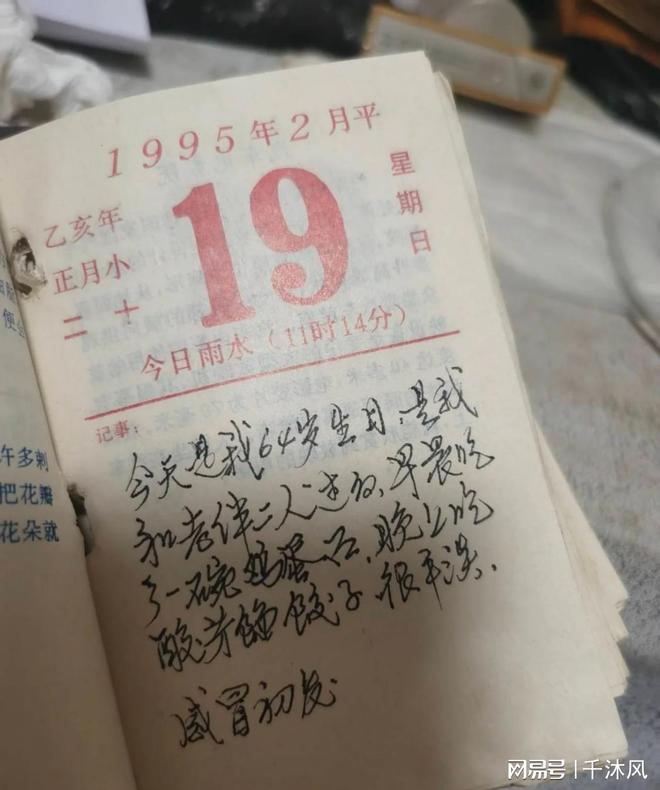 1995年2月平
乙亥年
正月小
二十
19
星期日
今日雨水（11时14分）
记事：
今天是我64岁生日，是我
和老伴二人过的，早晨吃
了一碗鸡蛋，晚上吃
酸菜馅饺子，很平淡．
感冒初发
便
许多刺
把花瓣
花朵就
网易号 | 千沐风